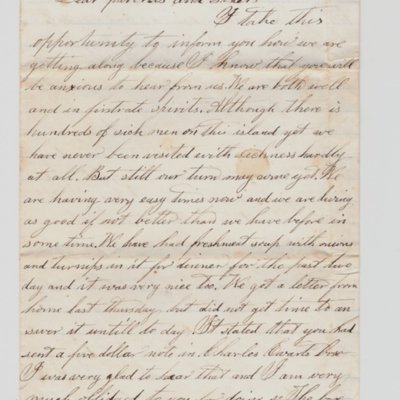 Dear parents and sister
I take this
opportunity to inform you how we are
getting along because I know that you will
be anxious to hear from us. We are both well
and in firstrate spirits. Although there is
hundreds of sick men on this island yet we
have never been visited with sickness hardly
at all. But still our turn may come yet. We
are having very easy times now and we are living
as good if not better than we have before in
some time. We have had freshment soup with
and turnips in it for dinner for the past two
day and it was very nice too. We got a letter from
home last thursday but did not get time to an
swer it untill to day. It stated that you had
sent a five dollar note in Charles box
I was very glad to hear that and I am very
much obliged to you for doing so The box